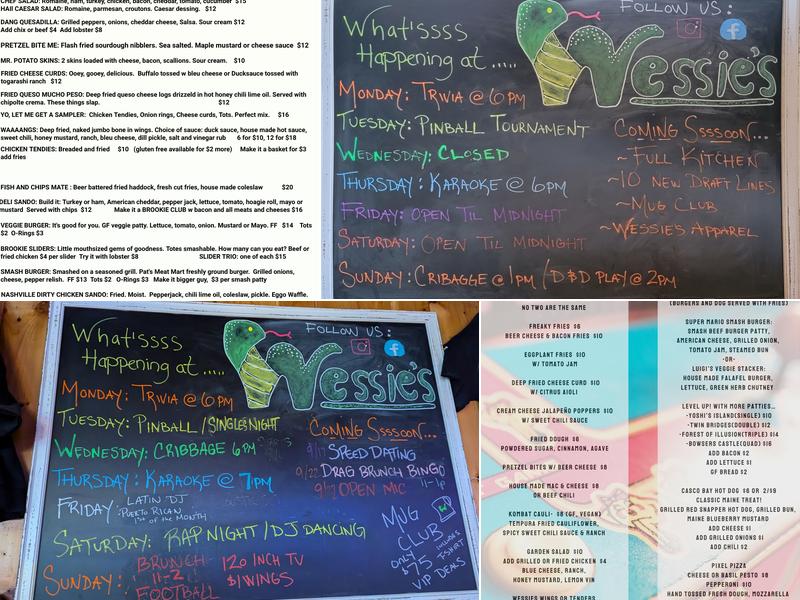 CHEF SALAD: Romaine, ham, turkey, chicken, bacon, cheddar, tomato, cucumber $15
HAIL CAESAR SALAD: Romaine, parmesan, croutons. Caesar dessing. $12
DANG QUESADILLA: Grilled peppers, onions, cheddar cheese, Salsa. Sour cream $12
Add chix or beef $4 Add lobster $8
PRETZEL BITE ME: Flash fried sourdough nibblers. Sea salted. Maple mustard or cheese sauce $12
MR. POTATO SKINS: 2 skins loaded with cheese, bacon, scallions. Sour cream. $10
FRIED CHEESE CURDS: Ooey, gooey, delicious. Buffalo tossed w bleu cheese or Ducksauce tossed with
togarashi ranch $12
FRIED QUESO MUCHO PESO: Deep fried queso cheese logs drizzeld in hot honey chili lime oil. Served with
chipolte crema. These things slap. $12
YO, LET ME GET A SAMPLER: Chicken Tendies, Onion rings, Cheese curds, Tots. Perfect mix. $16
WAAAANGS: Deep fried, naked jumbo bone in wings. Choice of sauce: duck sauce, house made hot sauce,
swet chili, honey mustard, ranch, bleu cheese, dill pickle, salt and vinegar rub 6 for $10, 12 for $18
CHICKEN TENDIES: Breaded and fried $10 (gluten free available for $2 more) Make it a basket for $3
add fries
FISH AND CHIPS MATE : Beer battered fried haddock, fresh cut fries, house made coleslaw $20
DELI SANDO: Build it: Turkey or ham, American cheddar, pepper jack, lettuce, tomato, hoagie roll, mayo or
mustard Served with chips $12 Make it a BROOKIE CLUB w bacon and all meats and cheeses $16
VEGGIE BURGER: It's good for you. GF veggie patty. Lettuce, tomato, onion. Mustard or Mayo. FF $14 Tots
$2 O-Rings $3
BROOKIE SLIDERS: Little mouthsized gems of goodness. Totes smashable. How many can you eat? Beef or
fried chicken $4 per slider Try it with lobster $8 SLIDER TRIO: one of each $15
SMASH BURGER: Smashed on a seasoned grill. Pat's Meat Mart freshly ground burger. Grilled onions,
cheese, pepper relish. FF $13 Tots $2 O-Rings $3 Make it bigger guy, $3 per smash patty
NASHVILLE DIRTY CHICKEN SANDO: Fried. Moist. Pepperjack, chili lime oil, coleslaw, pickle. Eggo Waffle.
What'ssss
Happening at ....
Follow us:
Wessie's
Monday: Trivia @ 6pm
Tuesday: Pinball Tournament
Wednesday: Closed
Thursday: Karaoke @ 6pm
Friday: Open til midnight
Saturday: Open til midnight
Sunday: Cribagge @ 1pm / D&D play @ 2pm
Coming Ssssoon...
~ Full Kitchen
~10 new draft lines
~Mug Club
~Wessie's Apparel
What'ssss
Happening at .....
Follow us:
Wessie's
Monday: Trivia @ 6pm
Tuesday: Pinball / Singles Night
Wednesday: Cribbage 6pm
Thursday: Karaoke @ 7pm
Friday: Latin DJ
Puerto Rican
1st of the month
Saturday: Rap Night / DJ Dancing
Sunday: Brunch 11-2
Football
120 inch TV
$1 Wings
Coming Ssssoon...
Speed Dating
Drag Brunch Bingo
11-1p
Open Mic
Mug
Club
only
$75
VIP Deals
NO TWO ARE THE SAME
FREAKY FRIES $6
BEER CHEESE & BACON FRIES $10
EGGPLANT FRIES $10
W/ TOMATO JAM
DEEP FRIED CHEESE CURD $10
W/ CITRUS AIOLI
CREAM CHEESE JALAPEÑO POPPERS $10
W/ SWEET CHILI SAUCE
FRIED DOUGH $8
POWDERED SUGAR, CINNAMON, AGAVE
PRETZEL BITES W/ BEER CHEESE $8
HOUSE MADE MAC & CHEESE $8
OR BEEF CHILI
KOMBAT CAULI- $8 (GF, VEGAN)
TEMPURA FRIED CAULIFLOWER,
SPICY SWEET CHILI SAUCE & RANCH
GARDEN SALAD $10
ADD GRILLED OR FRIED CHICKEN $4
BLUE CHEESE, RANCH,
HONEY MUSTARD, LEMON VIN
WESSIES WINGS OR TENDERS
(BURGERS AND DOG SERVED WITH FRIES)
SUPER MARIO SMASH BURGER:
SMASH BEEF BURGER PATTY,
AMERICAN CHEESE, GRILLED ONION,
TOMATO JAM, STEAMED BUN
-OR-
LUIGI'S VEGGIE STACKER:
HOUSE MADE FALAFEL BURGER,
LETTUCE, GREEN HERB CHUTNEY
LEVEL UP! WITH MORE PATTIES...
-YOSHI'S ISLAND(SINGLE) $10
-TWIN BRIDGES(DOUBLE) $12
-FOREST OF ILLUSION(TRIPLE) $14
-BOWSERS CASTLE(QUAD) $16
ADD BACON $2
ADD LETTUCE $1
GF BREAD $2
CASCO BAY HOT DOG $6 OR 2/$9
CLASSIC MAINE TREAT!
GRILLED RED SNAPPER HOT DOG, GRILLED BUN,
MAINE BLUEBERRY MUSTARD
ADD CHEESE $1
ADD GRILLED ONIONS $1
ADD CHILI $2
PIXEL PIZZA
CHEESE OR BASIL PESTO $8
PEPPERONI $10
HAND TOSSED FRESH DOUGH, MOZZARELLA